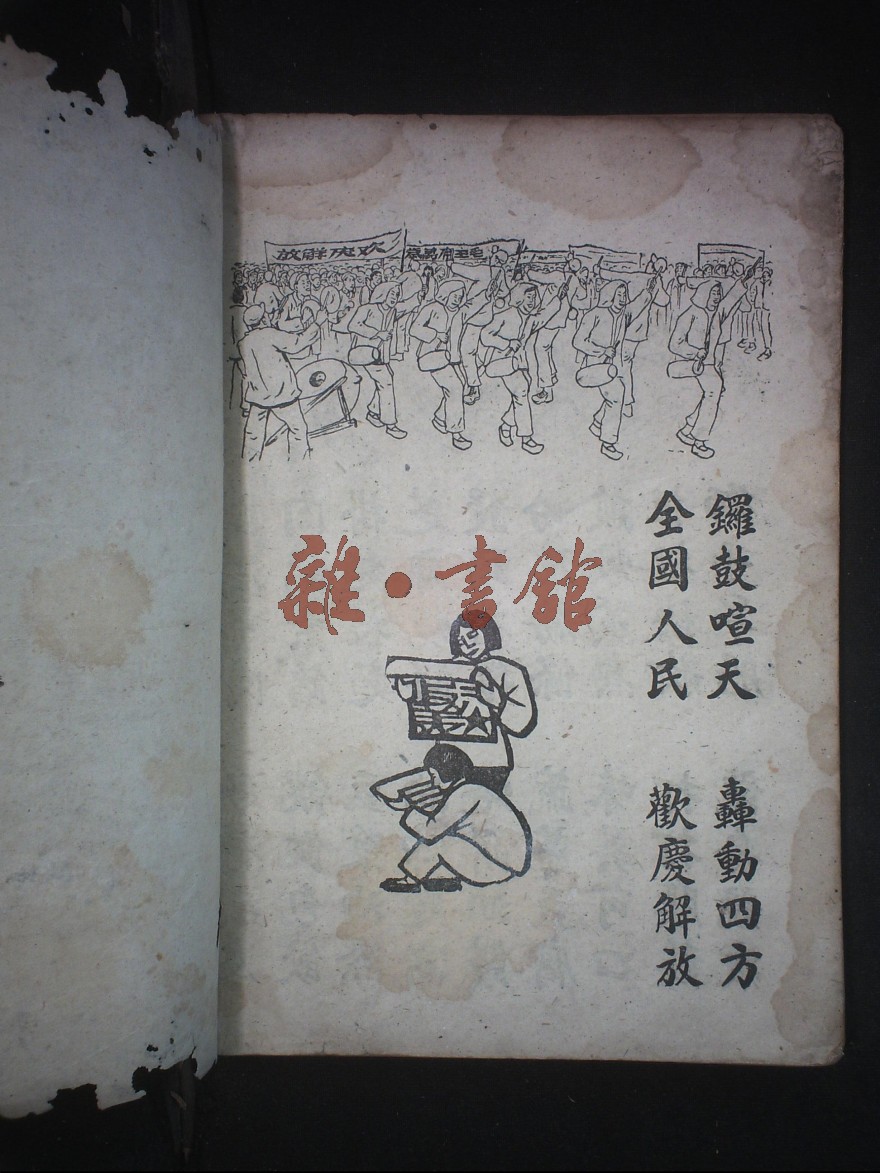 欢庆解放
毛主席萬歲
鑼鼓喧天 轟動四方
全國人民 歡慶解放
雜·書館